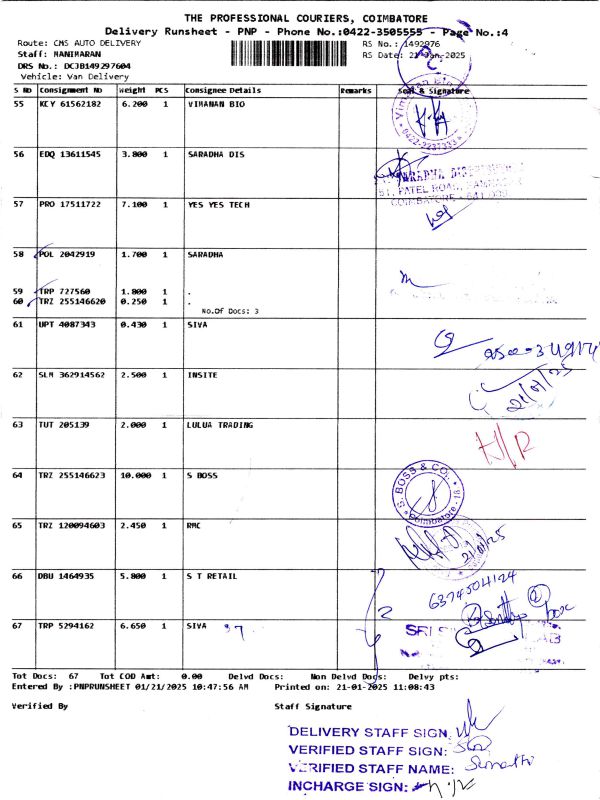 THE PROFESSIONAL COURIERS, COIMBATORE
Delivery Runsheet - PNP - Phone No.:0422-3505555 - Page No.:4
Route: CMS AUTO DELIVERY
RS No.: 1492976
Staff: MANIMARAN
RS Date: 21-Jan-2025
DRS No.: DCJB149297604
Vehicle: Van Delivery
S No Consignment No Weight PCS Consignee Details Remarks Seal & Signature
55 KCY 61562182 6.200 1 VIMANAN BIO
56 EDQ 13611545 3.800 1 SARADHA DIS
57 PRO 17511722 7.100 1 YES YES TECH
58 POL 2042919 1.700 1 SARADHA
59 TRP 727560 1.800 1 .
60 TRZ 255146620 0.250 1 .
No.Of Docs: 3
61 UPT 4087343 0.430 1 SIVA
62 SLM 362914562 2.500 1 INSITE
21/01/25
63 TUT 205139 2.000 1 LULUA TRADING
64 TRZ 255146623 10.000 1 S BOSS
S. BOSS & CO.
Coimbatore - 18
65 TRZ 120094603 2.450 1 RMC
21/01/25
66 DBU 1464935 5.800 1 S T RETAIL
6374504124
67 TRP 5294162 6.650 1 SIVA
SRI
Tot Docs: 67 Tot COD Amt: 0.00 Delvd Docs: Non Delvd Docs: Delvy pts:
Entered By :PNPRUNSHEET 01/21/2025 10:47:56 AM Printed on: 21-01-2025 11:08:43
Verified By Staff Signature
DELIVERY STAFF SIGN.
VERIFIED STAFF SIGN:
VERIFIED STAFF NAME: Sumathi
INCHARGE SIGN: